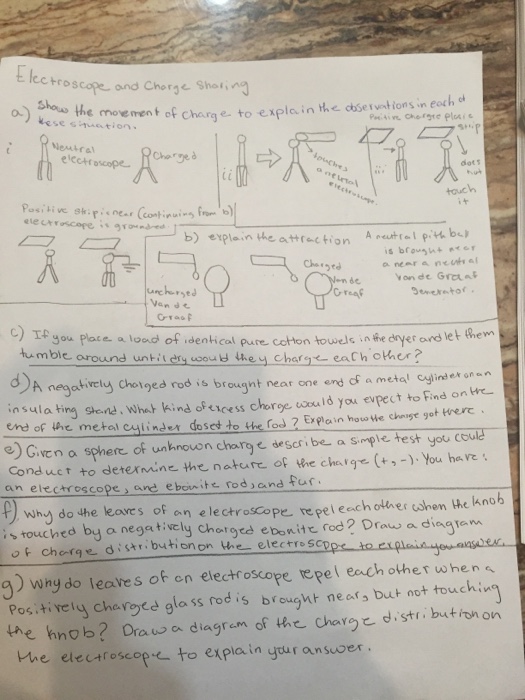 Electroscope and Charge Sharing
a.) Show the movement of charge to explain the observations in each of
these situation.
i
Neutral
electroscope
Charged
ii
touches
a neutral
electroscope
Positive charged plastic
strip
iii
does
not
touch
it
Positive strip is near (continuing from b)
electroscope is grounded
b) explain the attraction
A neutral pith ball
is brought near
a near a neutral
Van de Graaf
generator.
Charged
Van de
Graaf
Uncharged
Van de
Graaf
c) If you place a load of identical pure cotton towels in the dryer and let them
tumble around until dry would they charge each other?
d) A negatively charged rod is brought near one end of a metal cylinder on an
insulating stand. What kind of excess charge would you expect to find on the
end of the metal cylinder closet to the rod? Explain how the charge got there.
e) Given a sphere of unknown charge describe a simple test you could
conduct to determine the nature of the charge (+,-). You have:
an electroscope, and ebonite rod, and fur.
f) Why do the leaves of an electroscope repel each other when the knob
is touched by a negatively charged ebonite rod? Draw a diagram
of charge distribution on the electroscope to explain your answer.
g) Why do leaves of an electroscope repel each other when a
Positively charged glass rod is brought near, but not touching
the knob? Draw a diagram of the charge distribution on
the electroscope to explain your answer.